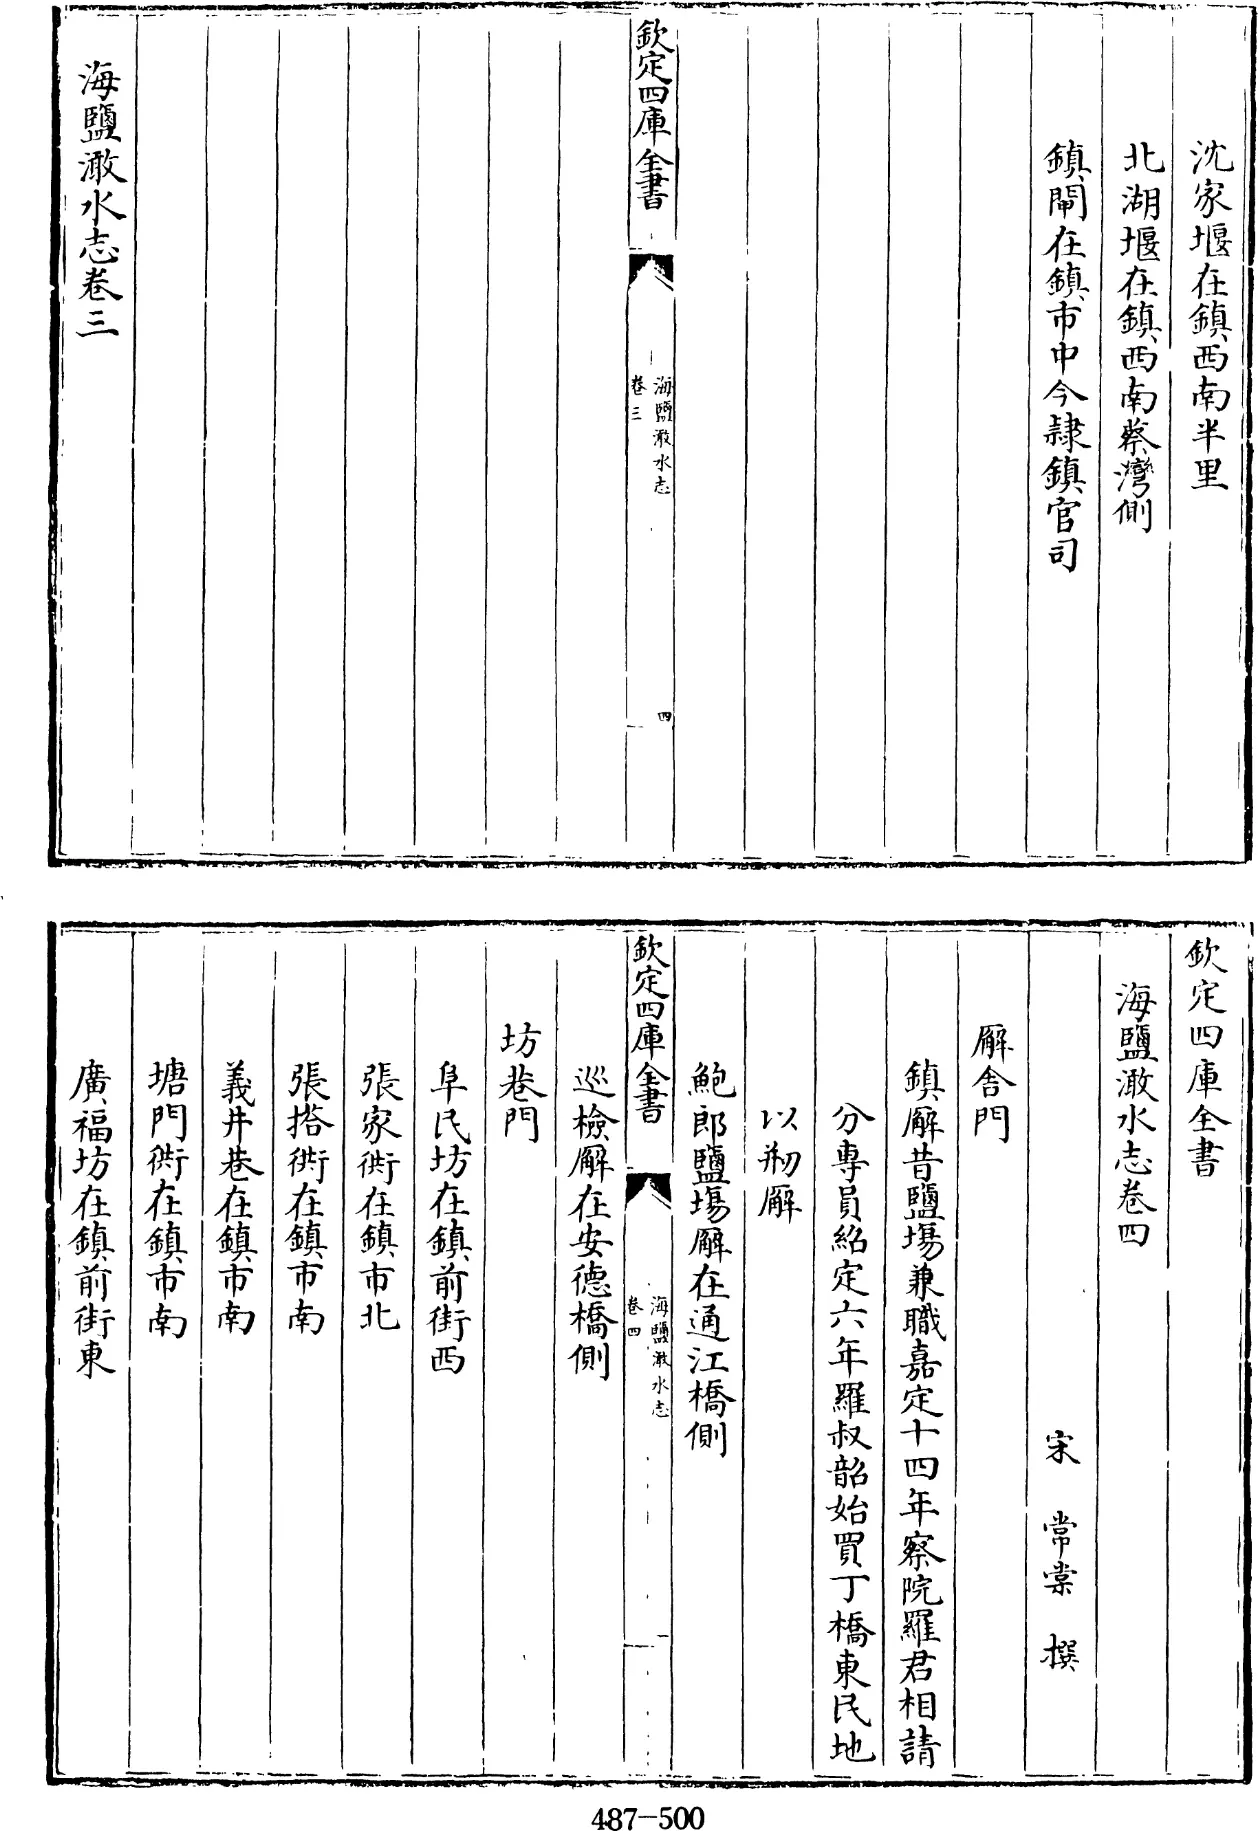 沈家堰在鎮西南半里
北湖堰在鎮西南蔡灣側
鎮閘在鎮市中今隷鎮官司
欽定四庫全書
海鹽澉水志
卷三
四
海鹽澉水志卷三
欽定四庫全書
海鹽澉水志卷四
宋 常棠 撰
廨舎門
鎮廨昔鹽塲兼職嘉定十四年察院羅君相請
分專員紹定六年羅叔韶始買丁橋東民地
以剏廨
鮑郎鹽塲廨在通江橋側
欽定四庫全書
海鹽澉水志
卷四
一
巡檢廨在安德橋側
坊巷門
阜民坊在鎮前街西
張家衖在鎮市北
張搭衖在鎮市南
義井巷在鎮市南
塘門衖在鎮市南
廣福坊在鎮前街東
487-500